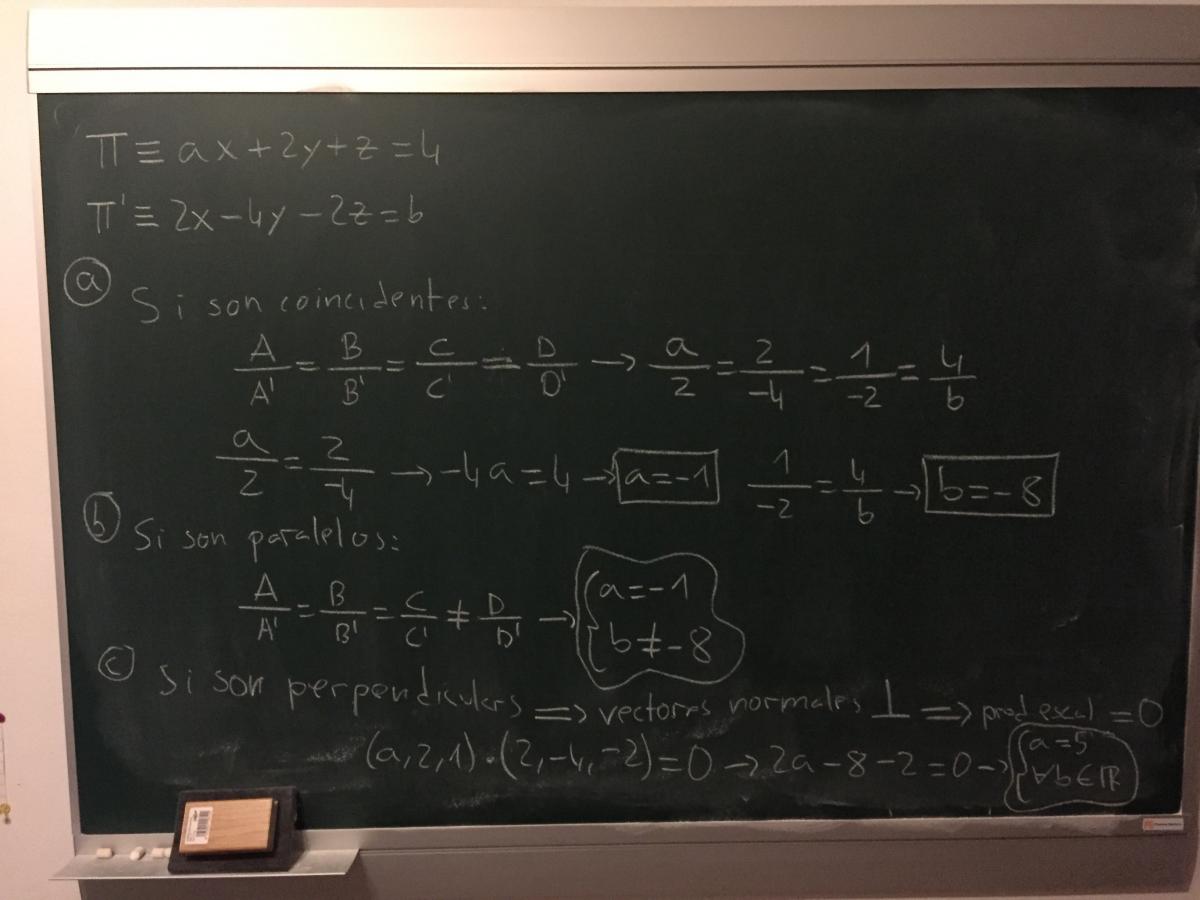 π ≡ ax+2y+z=4
π' ≡ 2x-4y-2z=b
a Si son coincidentes:
A/A' = B/B' = C/C' = D/D' → a/2 = 2/-4 = 1/-2 = 4/b
a/2 = 2/-4 → -4a=4 → a=-1 1/-2 = 4/b → b=-8
b Si son paralelos:
A/A' = B/B' = C/C' ≠ D/D' → { a=-1
b≠-8
c Si son perpendiculars ⇒ vectores normales ⊥ ⇒ prod escal =0
(a,2,1)·(2,-4,-2)=0 → 2a-8-2=0 → { a=5
∀b∈ℝ